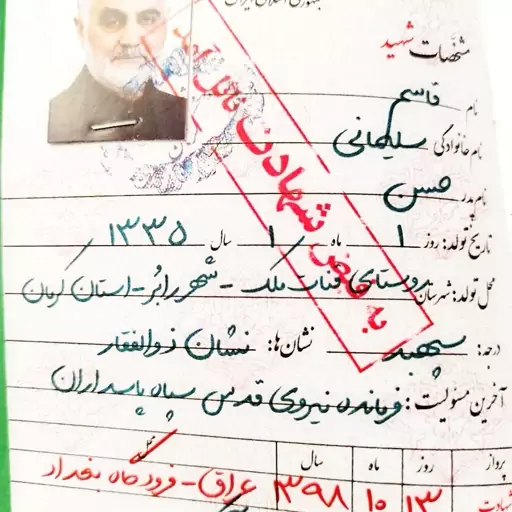 جمهوری اسلامی ایران
مشخصات شهید
نام قاسم
نام خانوادگی سلیمانی
نام پدر حسن
تاریخ تولد: روز ۱ ماه ۱ سال ۱۳۳۵
محل تولد: شهرستان روستای قنات ملک - شهر رابُر - استان کرمان
درجه: سپهبد نشان‌ها: نشان ذوالفقار
آخرین مسئولیت: فرمانده نیروی قدس سپاه پاسداران
پرواز روز ماه سال محل
شهادت ۱۳ ۱۰ ۱۳۹۸ عراق - فرودگاه بغداد
به فیض شهادت نائل آمد